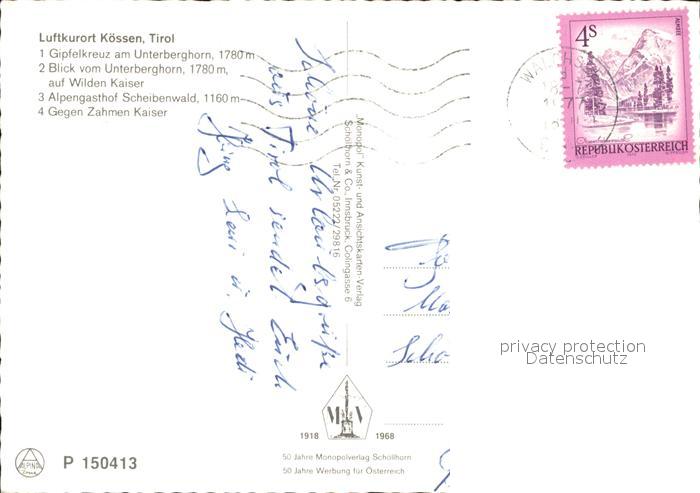 Luftkurort Kössen, Tirol
1 Gipfelkreuz am Unterberghorn, 1780 m
2 Blick vom Unterberghorn, 1780 m,
auf Wilden Kaiser
3 Alpengasthof Scheibenwald, 1160 m
4 Gegen Zahmen Kaiser
Schöne Urlaubsgrüße
aus Tirol sendet Euch
u. Hedi
„Monopol" Kunst- und Ansichtskarten-Verlag
Schöllhorn & Co., Innsbruck, Colingasse 6
Tel. Nr. 05222/29816
4S
ALMSEE
REPUBLIK ÖSTERREICH
WALCHS
77
privacy protection
Datenschutz
M V
1918 1968
50 Jahre Monopolverlag Schöllhorn
50 Jahre Werbung für Österreich
ALPINA
P 150413